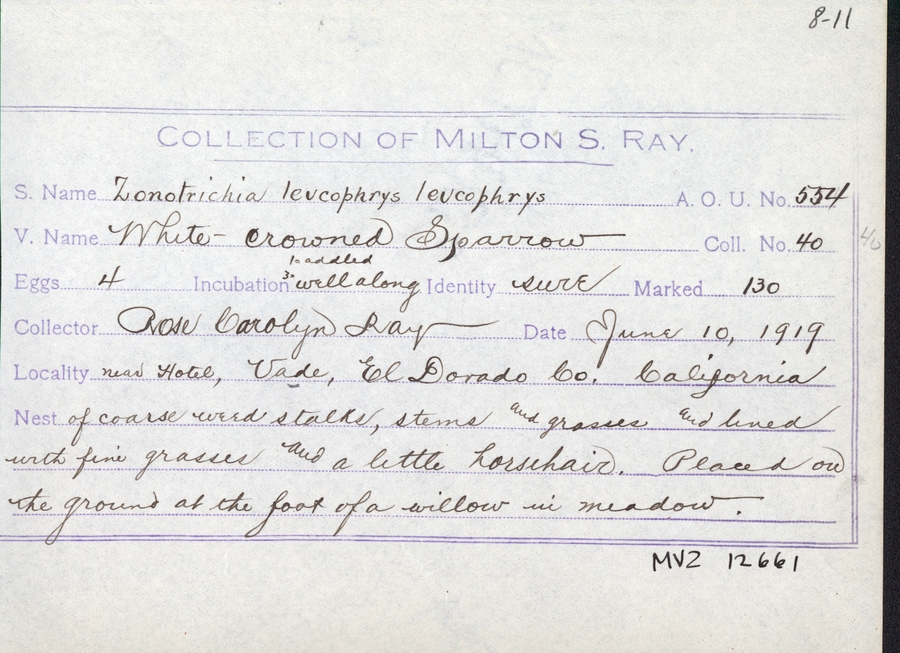 8-11
COLLECTION OF MILTON S. RAY.
S. Name Zonotrichia leucophrys leucophrys A. O. U. No. 554
V. Name White-crowned Sparrow Coll. No. 40 40
1 addled
Eggs 4 Incubation 3 well along Identity sure Marked 130
Collector Rose Carolyn Ray Date June 10, 1919
Locality near Hotel, Vade, El Dorado Co. California
Nest of coarse weed stalks, stems and grasses and lined
with fine grasses and a little horsehair. Placed on
the ground at the foot of a willow in meadow.
MVZ 12661